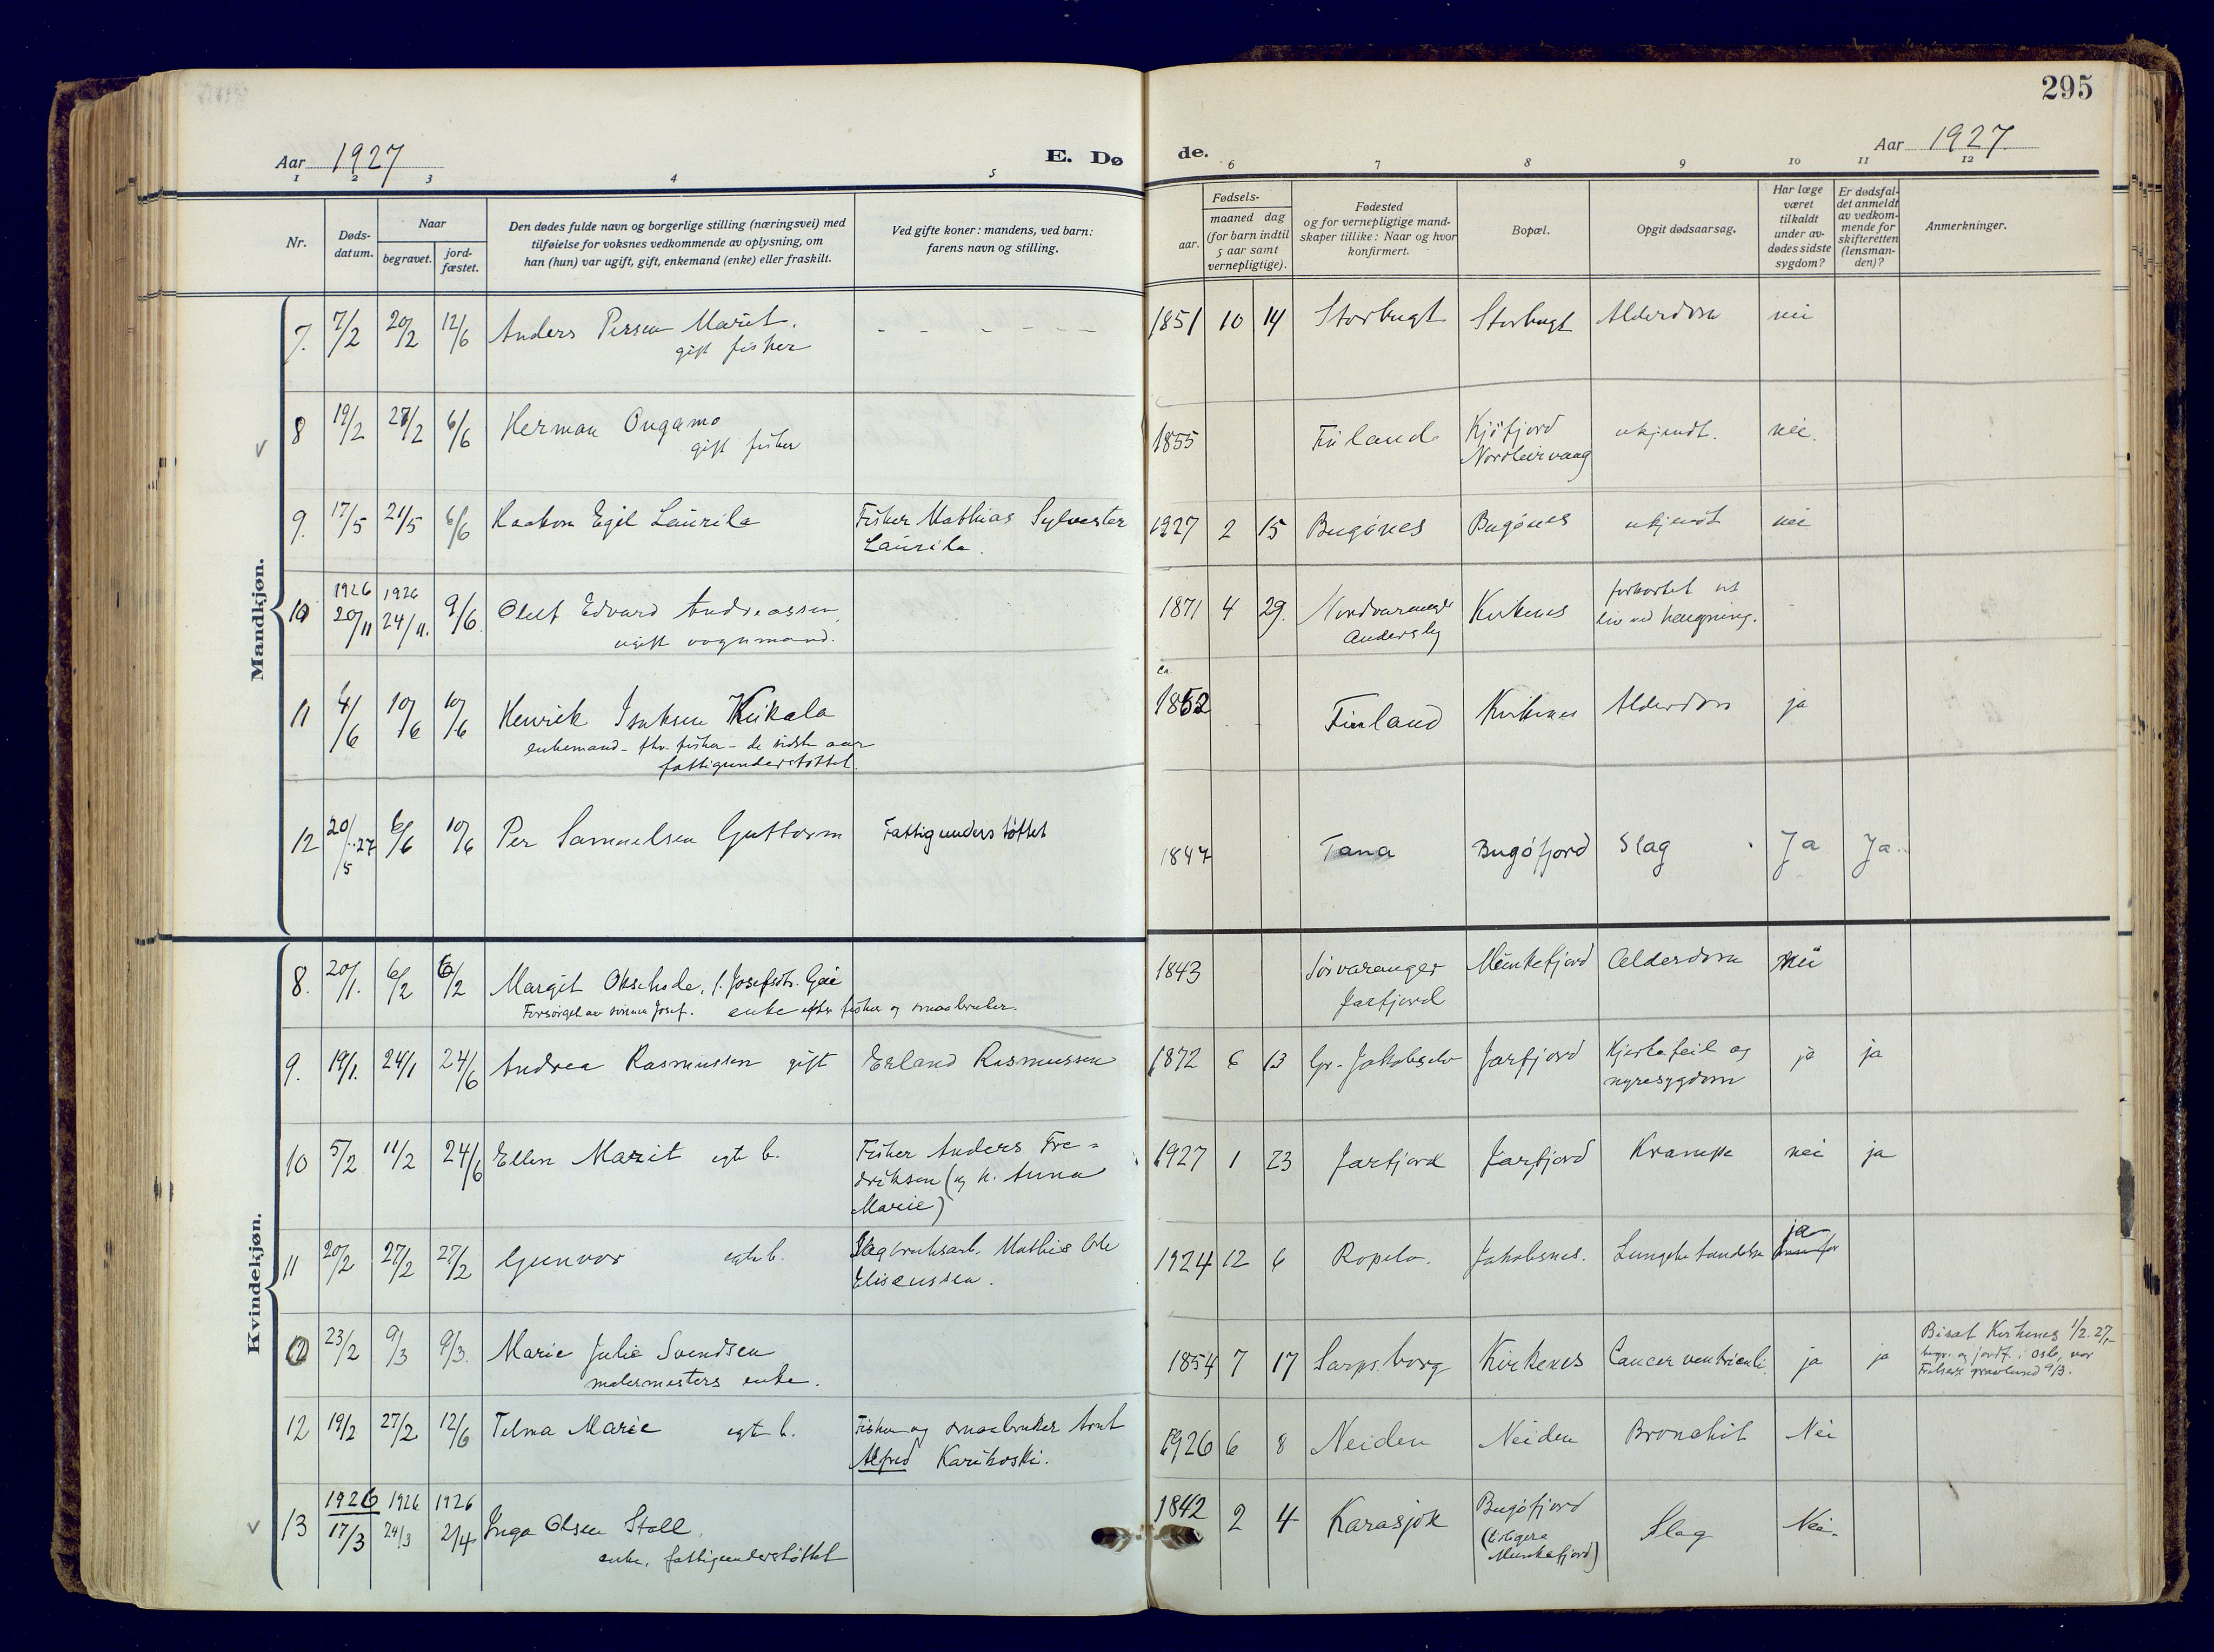 295
Aar 1927
E. Dø
de.
Aar 1927.
1 2 3 4 5 6 7 8 9 10 11 12
Nr.
Døds-
datum.
Naar
begravet.
jord-
fæstet.
Den dødes fulde navn og borgerlige stilling (næringsvei) med
tilføielse for voksnes vedkommende av oplysning, om
han (hun) var ugift, gift, enkemand (enke) eller fraskilt.
Ved gifte koner: mandens, ved barn:
farens navn og stilling.
Fødsels-
aar.
maaned dag
(for barn indtil
5 aar samt
vernepligtige).
Fødested
og for vernepligtige mand-
skaper tillike: Naar og hvor
konfirmert.
Bopæl.
Opgit dødsaarsag.
Har læge
været
tilkaldt
under av-
dødes sidste
sygdom?
Er dødsfal-
det anmeldt
av vedkom-
mende for
skifteretten
(lensman-
den)?
Anmerkninger.
Mandkjøn.
7. 7/2 20/2 12/6 Anders Persen Marit. - - - - - - 1851 10 14 Storbugt Storbugt Alderdom nei
gift fisher
8 19/2 27/2 6/6 Herman Ongamo 1855 Finland Kjöfjord ukjendt. nei.
gift fisher Nordleirvaag
9. 17/5 21/5 6/6 Haakon Egil Laurila Fisher Mathias Sylvester 1927 2 15 Bugönes Bugönes ukjendt nei
Laurila.
1926 1926
10 20/11 24/11. 9/6. Oluf Edvard Andreassen 1871 4 29. Nordvaranger Kirkenes forkortet sit
ugift vognmand. Andersby liv ved hengning.
ca
11 4/6 10/6 10/6 Henrik Isaksen Keikala 1852 Finland Kirkenes Alderdom ja
enkemand - fhv. fisher - de sidste aar
fattigunderstøttet.
12 20/5 27 6/6 10/6 Per Samuelsen Guttorm Fattigunderstøttet 1847 Tana Bugöfjord Slag Ja Ja
Kvindekjøn.
8. 20/1. 6/2 6/2 Margit Oksehode, f. Josefsdtr. Gai 1843 Sörvaranger Munkefjord Alderdom nei
Forsörget av sönnen Josef. enke efter fisher og smaabruker. Jarfjord
9. 19/1. 24/1 24/6 Andrea Rasmussen gift Erland Rasmussen 1872 6 13 Gr. Jakobselv Jarfjord Hjertefeil og ja ja
nyresygdom
10 5/2 11/2 24/6 Ellen Marit egte b. Fisher Anders Fre- 1927 1 23 Jarfjord Jarfjord Krampe nei ja
driksen (og h. Anna
Marie)
11 20/2 27/2 27/2 Gunvor egte b. Sagbruksarb. Mathis Ole 1924 12 6 Ropelv. Jakobsnes. Lungebetændelse ja
Eliseussen.
12 23/2 9/3 9/3. Marie Julie Svendsen 1854 7 17 Sarpsborg Kirkenes Cancer ventriculi. ja ja
malermesters enke.
Bisat Kirkenes 1/2. 27,
begr. og jordf. i Oslo, vor
Frelsers gravlund 9/3.
12 19/2 27/2 12/6 Telma Marie egte b. Fisher og smaabruker Arnt 1926 6 8 Neiden Neiden Bronchit Nei
Alfred Karikoski.
1926 1926 1926
13 17/3 24/3 2/4 Inga Olsen Stall. 1842 2 4 Karasjok Bugöfjord Slag Nei.
enke, fattigunderstøttet (tidligere
Munkefjord)